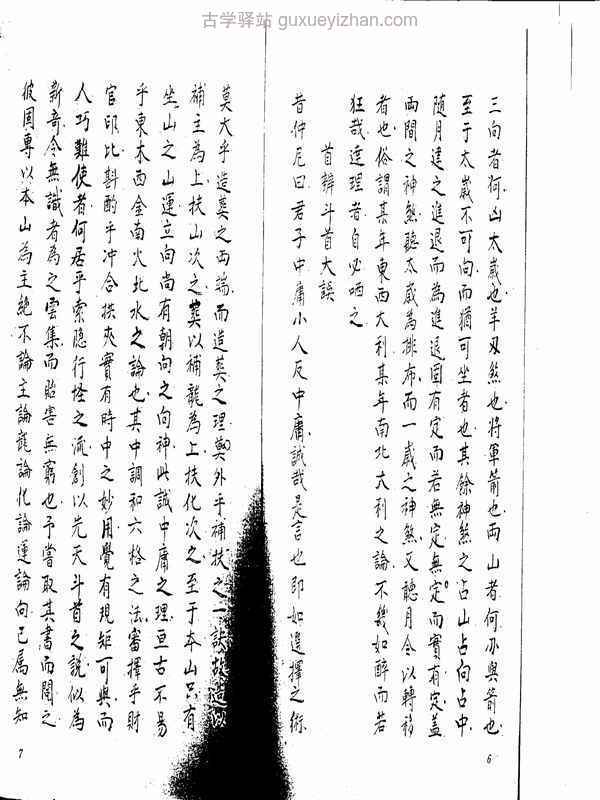 古学驿站 guxueyizhan.com
三向者何凶太歲也羊刃煞也將軍箭也两山者何刃與箭也
至于太歲不可向而猶可坐者也其餘神煞之占山占向占中
随月建之進退而為進退固有定而若無定無定而實有定盖
两間之神煞聽太歲為排布而一歲之神煞又聽月令以轉移
者也俗謂某年東西大利某年南北大利之論不幾如醉而若
狂哉達理者自必哂之
首辨斗首大誤
昔仲尼曰君子中庸小人反中庸誠哉是言也即如選擇之術
6
莫大乎造葬之两端而造葬之理莫外乎補扶之一訣故造以
補主為上扶山次之葬以補龍為上扶化次之至于本山只有
坐山之山運立向尚有朝向之向神此誠中庸之理亘古不易
乎東木西金南火北水之論也其中調和六格之法審擇乎財
官印比斟酌乎冲合拱夾實有時中之妙用覺有規矩可與而
人巧難使者何居乎索隐行怪之流創以先天斗首之說似為
新奇令無識者為之雲集而貽害無窮也予嘗取其書而閱之
彼固專以本山為主絶不論主論龍論化論運論向已属無知
7